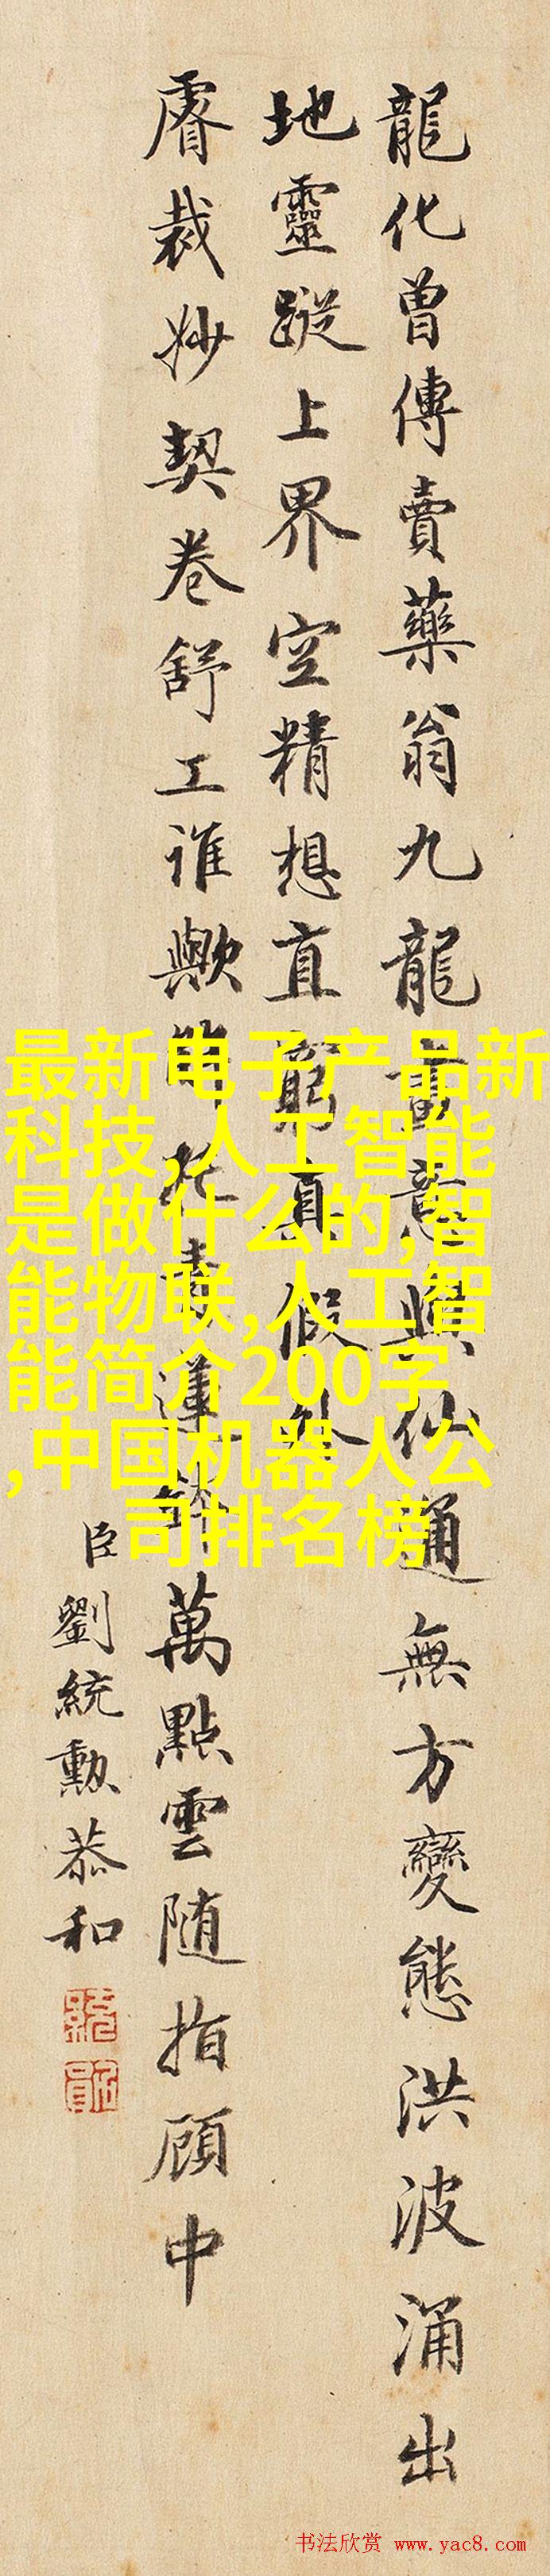 龍化曾傳賣藥翁九龍畫意與仙通無方變態洪波涌出
地靈蹤上界空精想直窮真假外
睿裁妙契卷舒工誰歟青蓮鉢萬點雲随指顧中
臣劉統勳恭和
最新电子产品新
科技,人工智能
是做什么的,智
能物联,人工智
能简介200字
,中国机器人公
司排名榜
书法欣赏 www.yac8.com